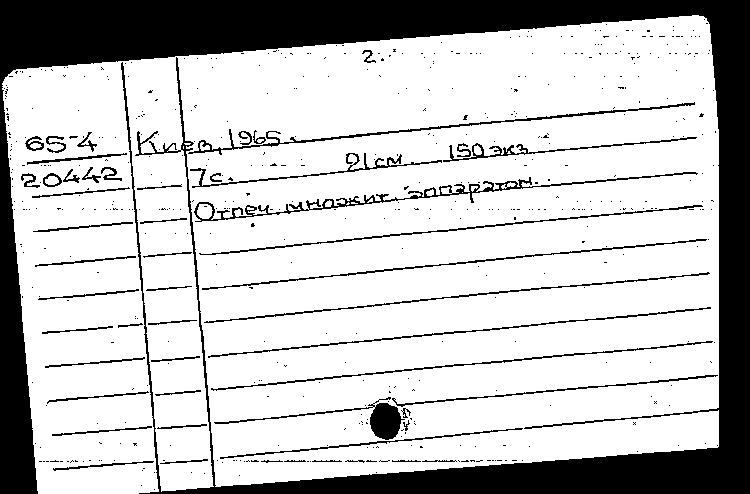 2.
65-4 Киев, 1965.
20442 7с. 21см. 150 экз
Отпеч. множит. аппаратом.